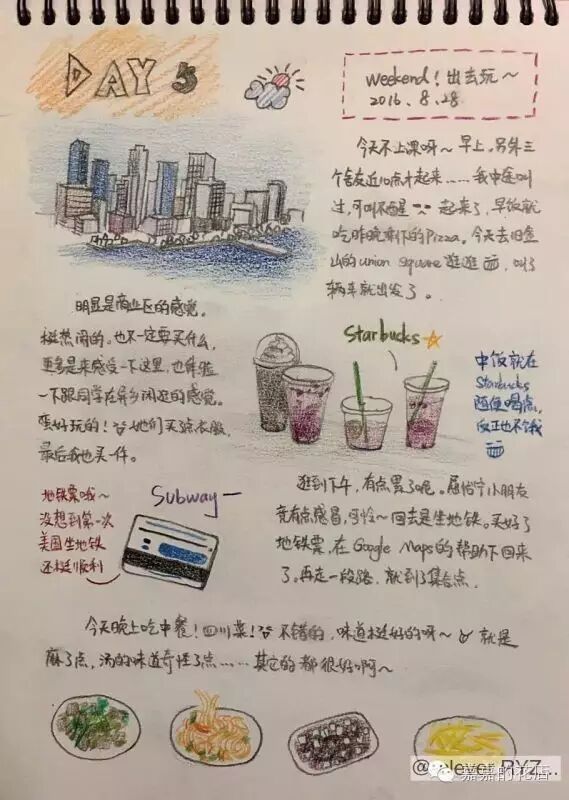 DAY 5
Weekend！出去玩～
2016.8.28
今天不上课呀～早上，另外三
个舍友近10点才起来……我中途叫
过，可叫不醒 起来了，早饭就
吃昨晚剩下的Pizza。今天去旧金
山的union square逛逛，叫了
辆车就出发了。
明显是商业区的感觉。
挺热闹的。也不一定要买什么，
更多是来感受一下这里，也体验
一下跟同学在异乡闲逛的感觉。
蛮好玩的！她们买了点衣服，
最后我也买一件。
Starbucks
中饭就在
Starbucks
随便喝点，
反正也不饿
逛到下午，有点累了呢。屈怡宁小朋友
竟有点感冒，可怜～回去是坐地铁。买好了
地铁票，在Google Maps的帮助下回来
了。再走一段路，就到了集合点。
Subway—
地铁票哦～
没想到第一次
美国坐地铁
还挺顺利
今天晚上吃中餐！四川菜！不错的，味道挺好的呀～就是
麻了点，汤的味道奇怪了点……其它的都很好啊～
嘉嘉的花店